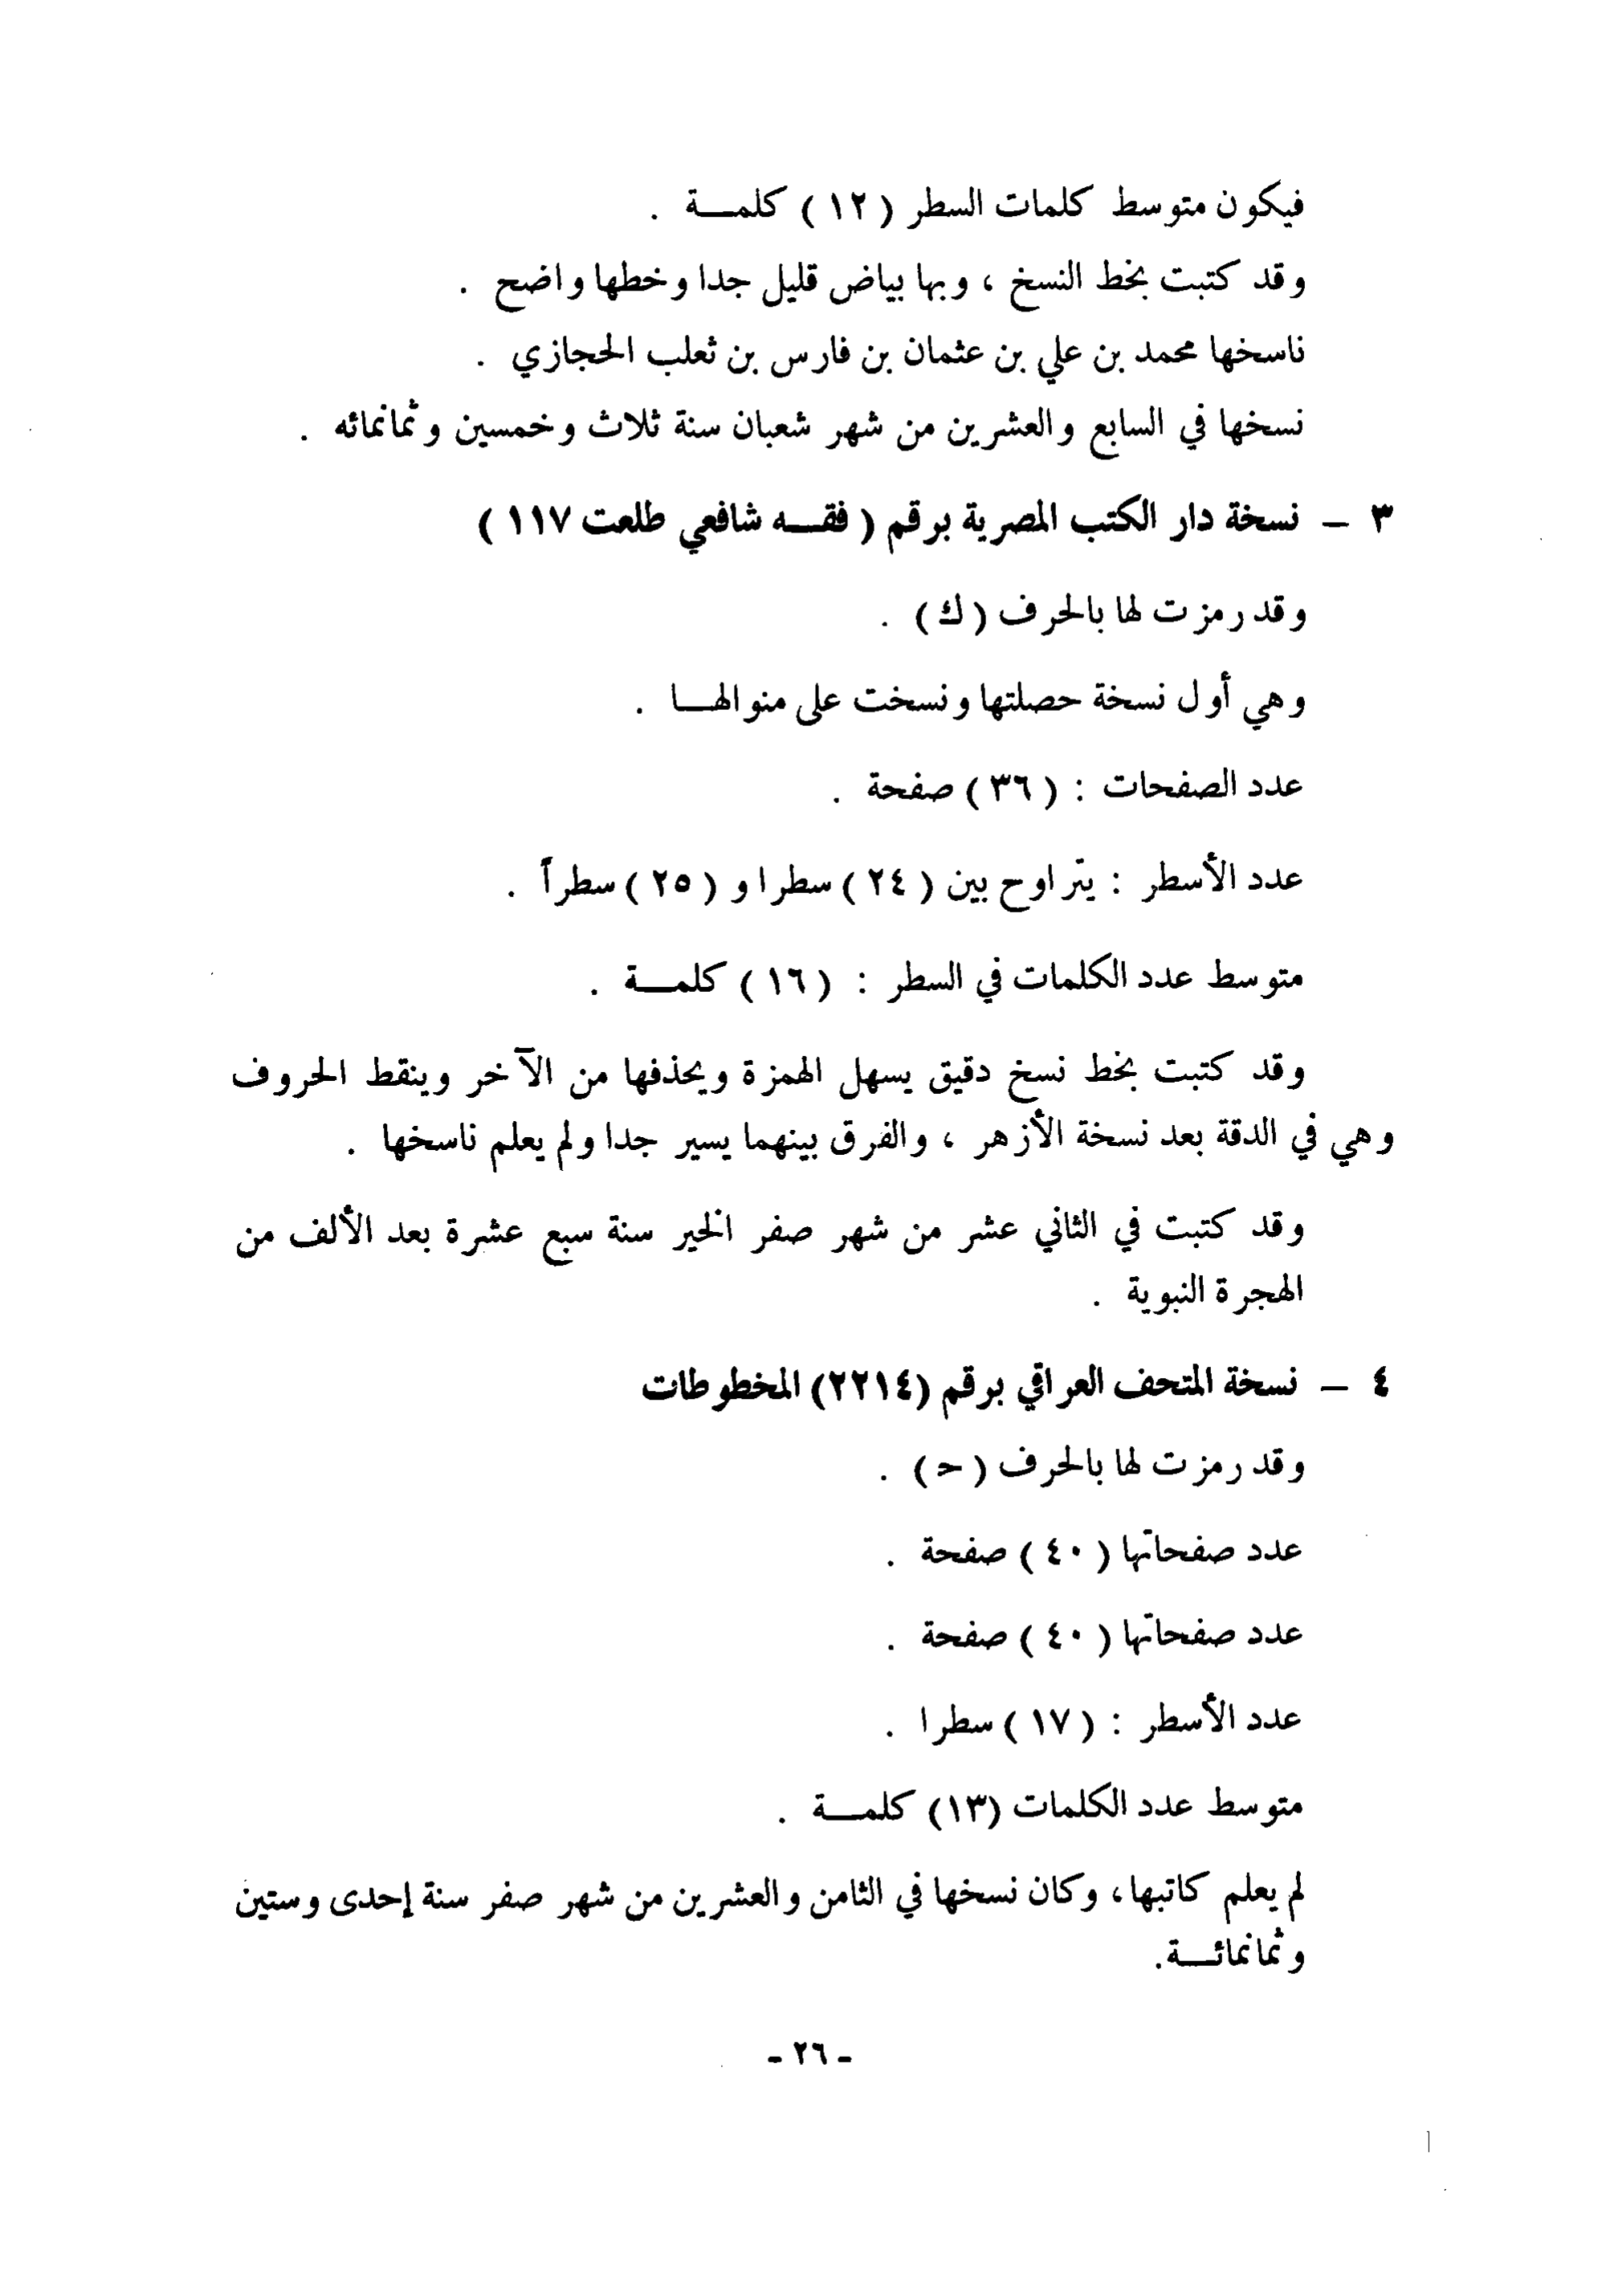 فيكون متوسط كلمات السطر ( ١٢ ) كلمـــة .
وقد كتبت بخط النسخ ، وبها بياض قليل جدا وخطها واضح .
ناسخها محمد بن علي بن عثمان بن فارس بن ثعلب الحجازي .
نسخها في السابع والعشرين من شهر شعبان سنة ثلاث وخمسين وثمانمائه .
٣ – نسخة دار الكتب المصرية برقم ( فقـــه شافعي طلعت ١١٧ )
وقد رمزت لها بالحرف ( ك ) .
وهي أول نسخة حصلتها ونسخت على منوالهـــا .
عدد الصفحات : ( ٣٦ ) صفحة .
عدد الأسطر : يتراوح بين ( ٢٤ ) سطرا و ( ٢٥ ) سطراً .
متوسط عدد الكلمات في السطر : ( ١٦ ) كلمـــة .
وقد كتبت بخط نسخ دقيق يسهل الهمزة ويحذفها من الآخر وينقط الحروف
وهي في الدقة بعد نسخة الأزهر ، والفرق بينهما يسير جدا ولم يعلم ناسخها .
وقد كتبت في الثاني عشر من شهر صفر الخير سنة سبع عشرة بعد الألف من
الهجرة النبوية .
٤ – نسخة المتحف العراقي برقم (٢٢١٤) المخطوطات
وقد رمزت لها بالحرف ( حـ ) .
عدد صفحاتها ( ٤٠ ) صفحة .
عدد صفحاتها ( ٤٠ ) صفحة .
عدد الأسطر : ( ١٧ ) سطرا .
متوسط عدد الكلمات (١٣) كلمـــة .
لم يعلم كاتبها، وكان نسخها في الثامن والعشرين من شهر صفر سنة إحدى وستين
وثمانمائـــة.
- ٢٦ -